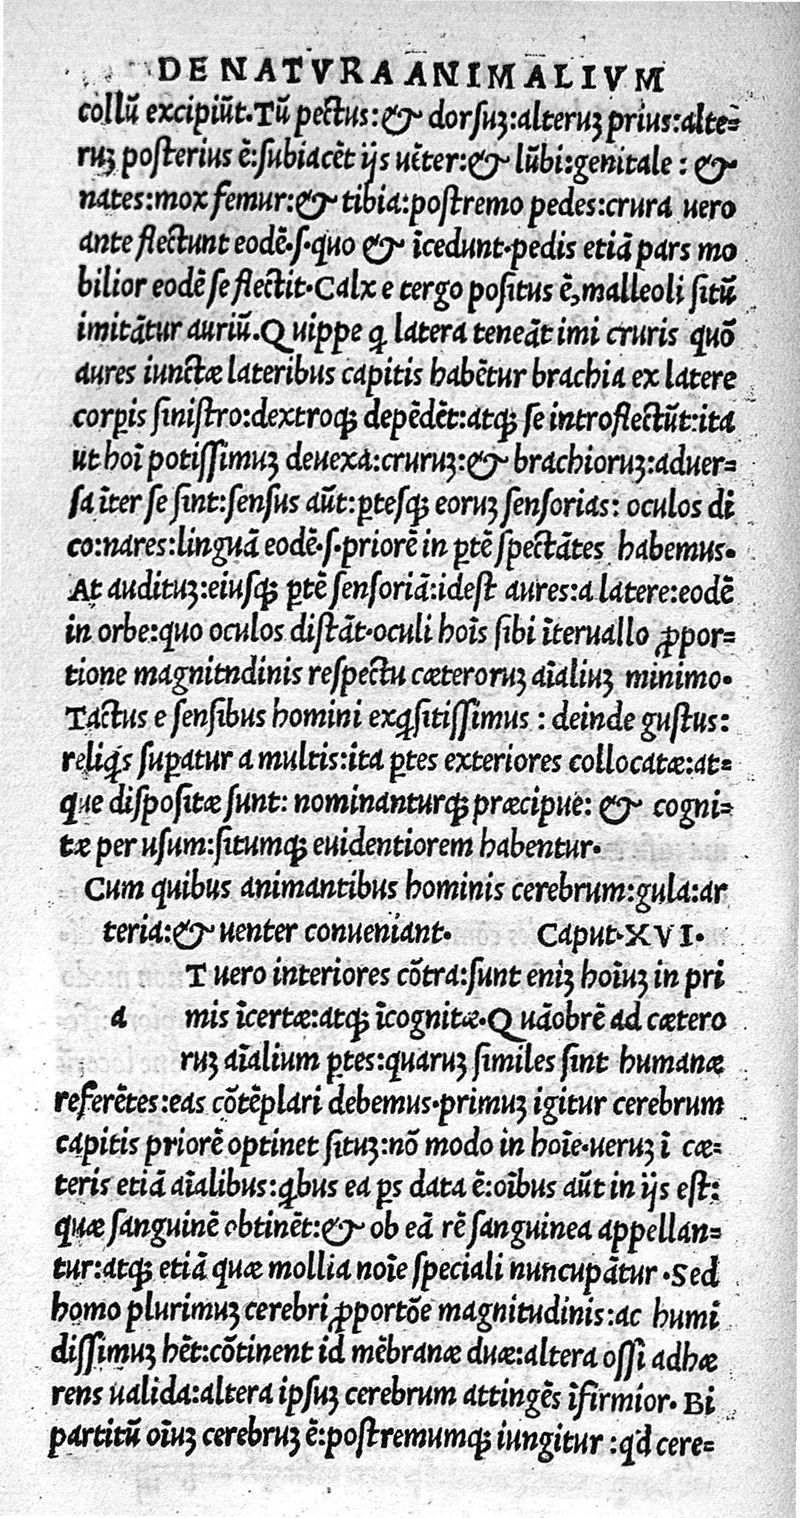 DE NATVRA ANIMALIVM
collū excipiūt.Tū pectus:& dorsuꝫ:alteruꝫ prius:alte=
ruꝫ posterius ē:subiacēt ijs uēter:& lūbi:genitale : &
nates:mox femur:& tibia:postremo pedes:crura uero
ante flectunt eodē·s·quo & īcedunt·pedis etiā pars mo
bilior eodē se flectit·Calx e tergo positus ē,malleoli sitū
imitātur auriū.Quippe ꝗ latera teneāt imi cruris quō
aures iunctæ lateribus capitis habētur brachia ex latere
corꝑis sinistro:dextroqꝫ depēdēt:atqꝫ se introflectūt:ita
ut hoī potissimuꝫ deuexa:cruruꝫ:& brachioruꝫ:aduer=
sa īter se sint:sensus aūt:ꝑtesqꝫ eoruꝫ sensorias: oculos di
co:nares:linguā eodē·s·priorē in ꝑtē spectātes habemus·
At audituꝫ:eiusqꝫ ꝑtē sensoriā:idest aures:a latere:eodē
in orbe:quo oculos distāt·oculi hoīs sibi īteruallo ꝓpor=
tione magnitndinis respectu cæteroruꝫ aīaliuꝫ minimo·
Tactus e sensibus homini exꝗsitissimus : deinde gustus:
reliꝗs suꝑatur a multis:ita ꝑtes exteriores collocatæ:at=
que dispositæ sunt: nominanturqꝫ præcipue: & cogni=
tæ per usum:situmqꝫ euidentiorem habentur·
Cum quibus animantibus hominis cerebrum:gula:ar
teria:& uenter conueniant· Caput·XVI·
T uero interiores cōtra:sunt eniꝫ hoīuꝫ in pri
a mis īcertæ:atqꝫ īcognitæ·Quāobrē ad cætero
ruꝫ aīalium ꝑtes:quaruꝫ similes sint humanæ
referētes:eas cōtēplari debemus·primuꝫ igitur cerebrum
capitis priorē optinet situꝫ:nō modo in hoīe·ueruꝫ ī cæ=
teris etiā aīalibus:ꝗbus ea ꝑs data ē:oībus aūt in ijs est:
quæ sanguinē obtinēt:& ob eā rē sanguinea appellan=
tur:atqꝫ etiā quæ mollia noīe speciali nuncupātur ·Sed
homo plurimuꝫ cerebri ꝓportōe magnitudinis:ac humi
dissimuꝫ hēt:cōtinent id mēbranæ duæ:altera ossi adhæ
rens ualida:altera ipsuꝫ cerebrum attingēs īfirmior· Bi
partitū oīuꝫ cerebruꝫ ē:postremumqꝫ iungitur :qd̄ cere=